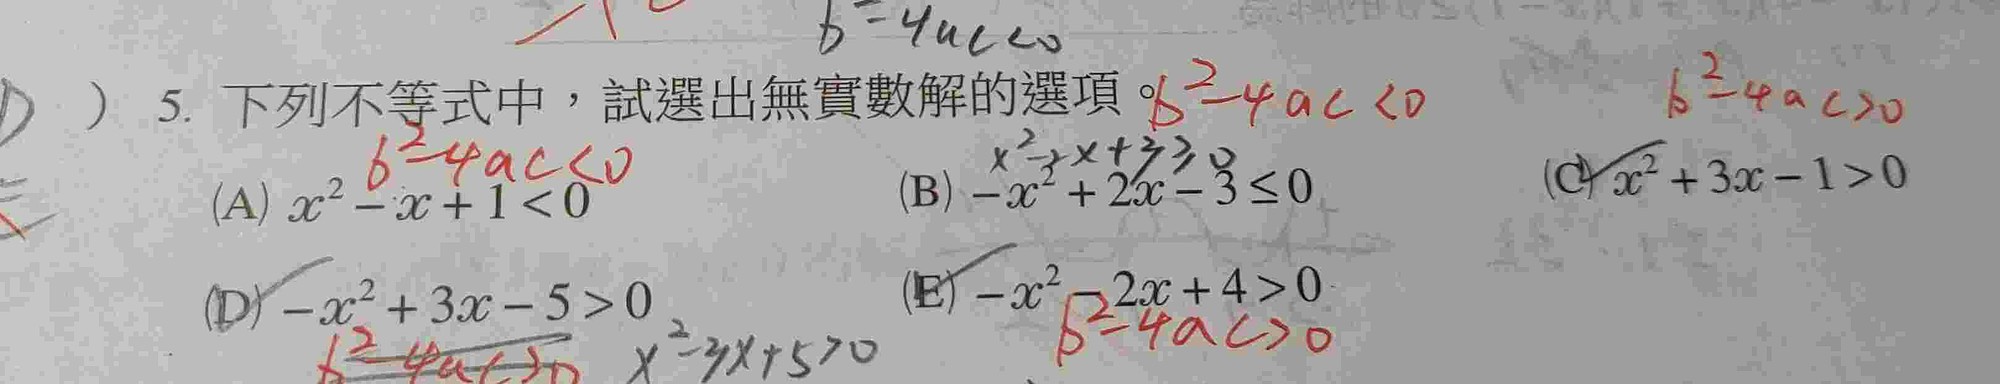 b²-4ac<0
D ) 5. 下列不等式中，試選出無實數解的選項。 b²-4ac<0 b²-4ac>0
b²-4ac<0
(A) x² - x + 1 < 0 (B) -x² + 2x - 3 ≤ 0 (C) x² + 3x - 1 > 0
(D) -x² + 3x - 5 > 0 (E) -x² - 2x + 4 > 0
b²-4ac>0 x²-3x+5>0 b²-4ac>0